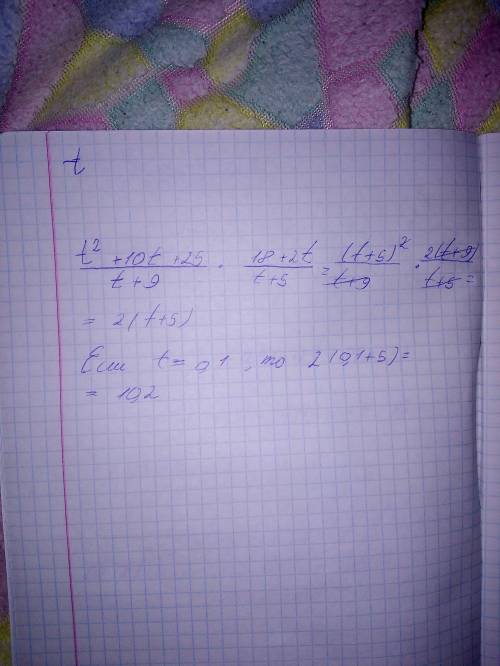 t
t² +10t +25 / t+9 · 18+2t / t+5 = (t+5)² / t+9 · 2(t+9) / t+5 =
= 2(t+5)
Если t = 0,1 , то 2(0,1+5) =
= 10,2